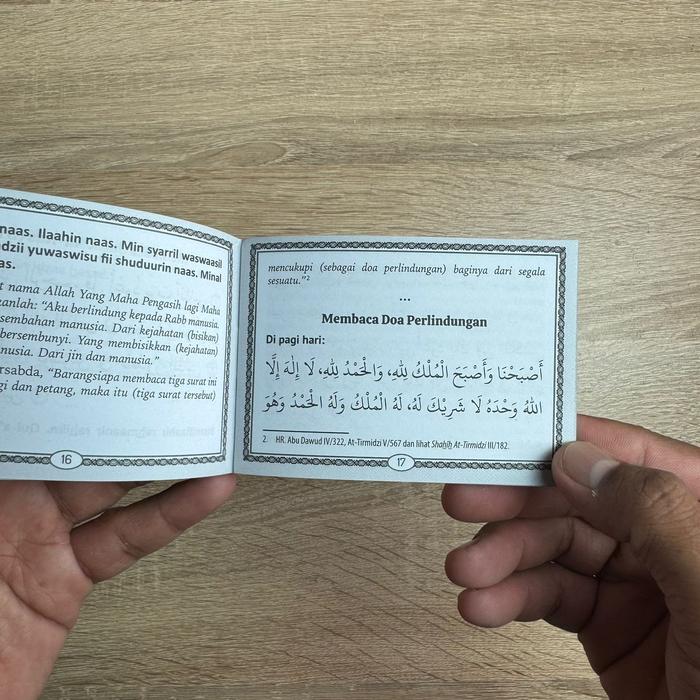 naas. Ilaahin naas. Min syarril waswaasil
dzii yuwaswisu fii shuduurin naas. Minal
as.
t nama Allah Yang Maha Pengasih lagi Maha
anlah: “Aku berlindung kepada Rabb manusia.
sembahan manusia. Dari kejahatan (bisikan)
bersembunyi. Yang membisikkan (kejahatan)
nusia. Dari jin dan manusia.”
rsabda, “Barangsiapa membaca tiga surat ini
gi dan petang, maka itu (tiga surat tersebut)
16
mencukupi (sebagai doa perlindungan) baginya dari segala
sesuatu.”²
...
Membaca Doa Perlindungan
Di pagi hari:
أَصْبَحْنَا وَأَصْبَحَ الْمُلْكُ لِلَّهِ، وَالْحَمْدُ لِلَّهِ، لَا إِلَهَ إِلَّا
اللهُ وَحْدَهُ لَا شَرِيْكَ لَهُ، لَهُ الْمُلْكُ وَلَهُ الْحَمْدُ وَهُوَ
2. HR. Abu Dawud IV/322, At-Tirmidzi V/567 dan lihat Shahih At-Tirmidzi III/182.
17